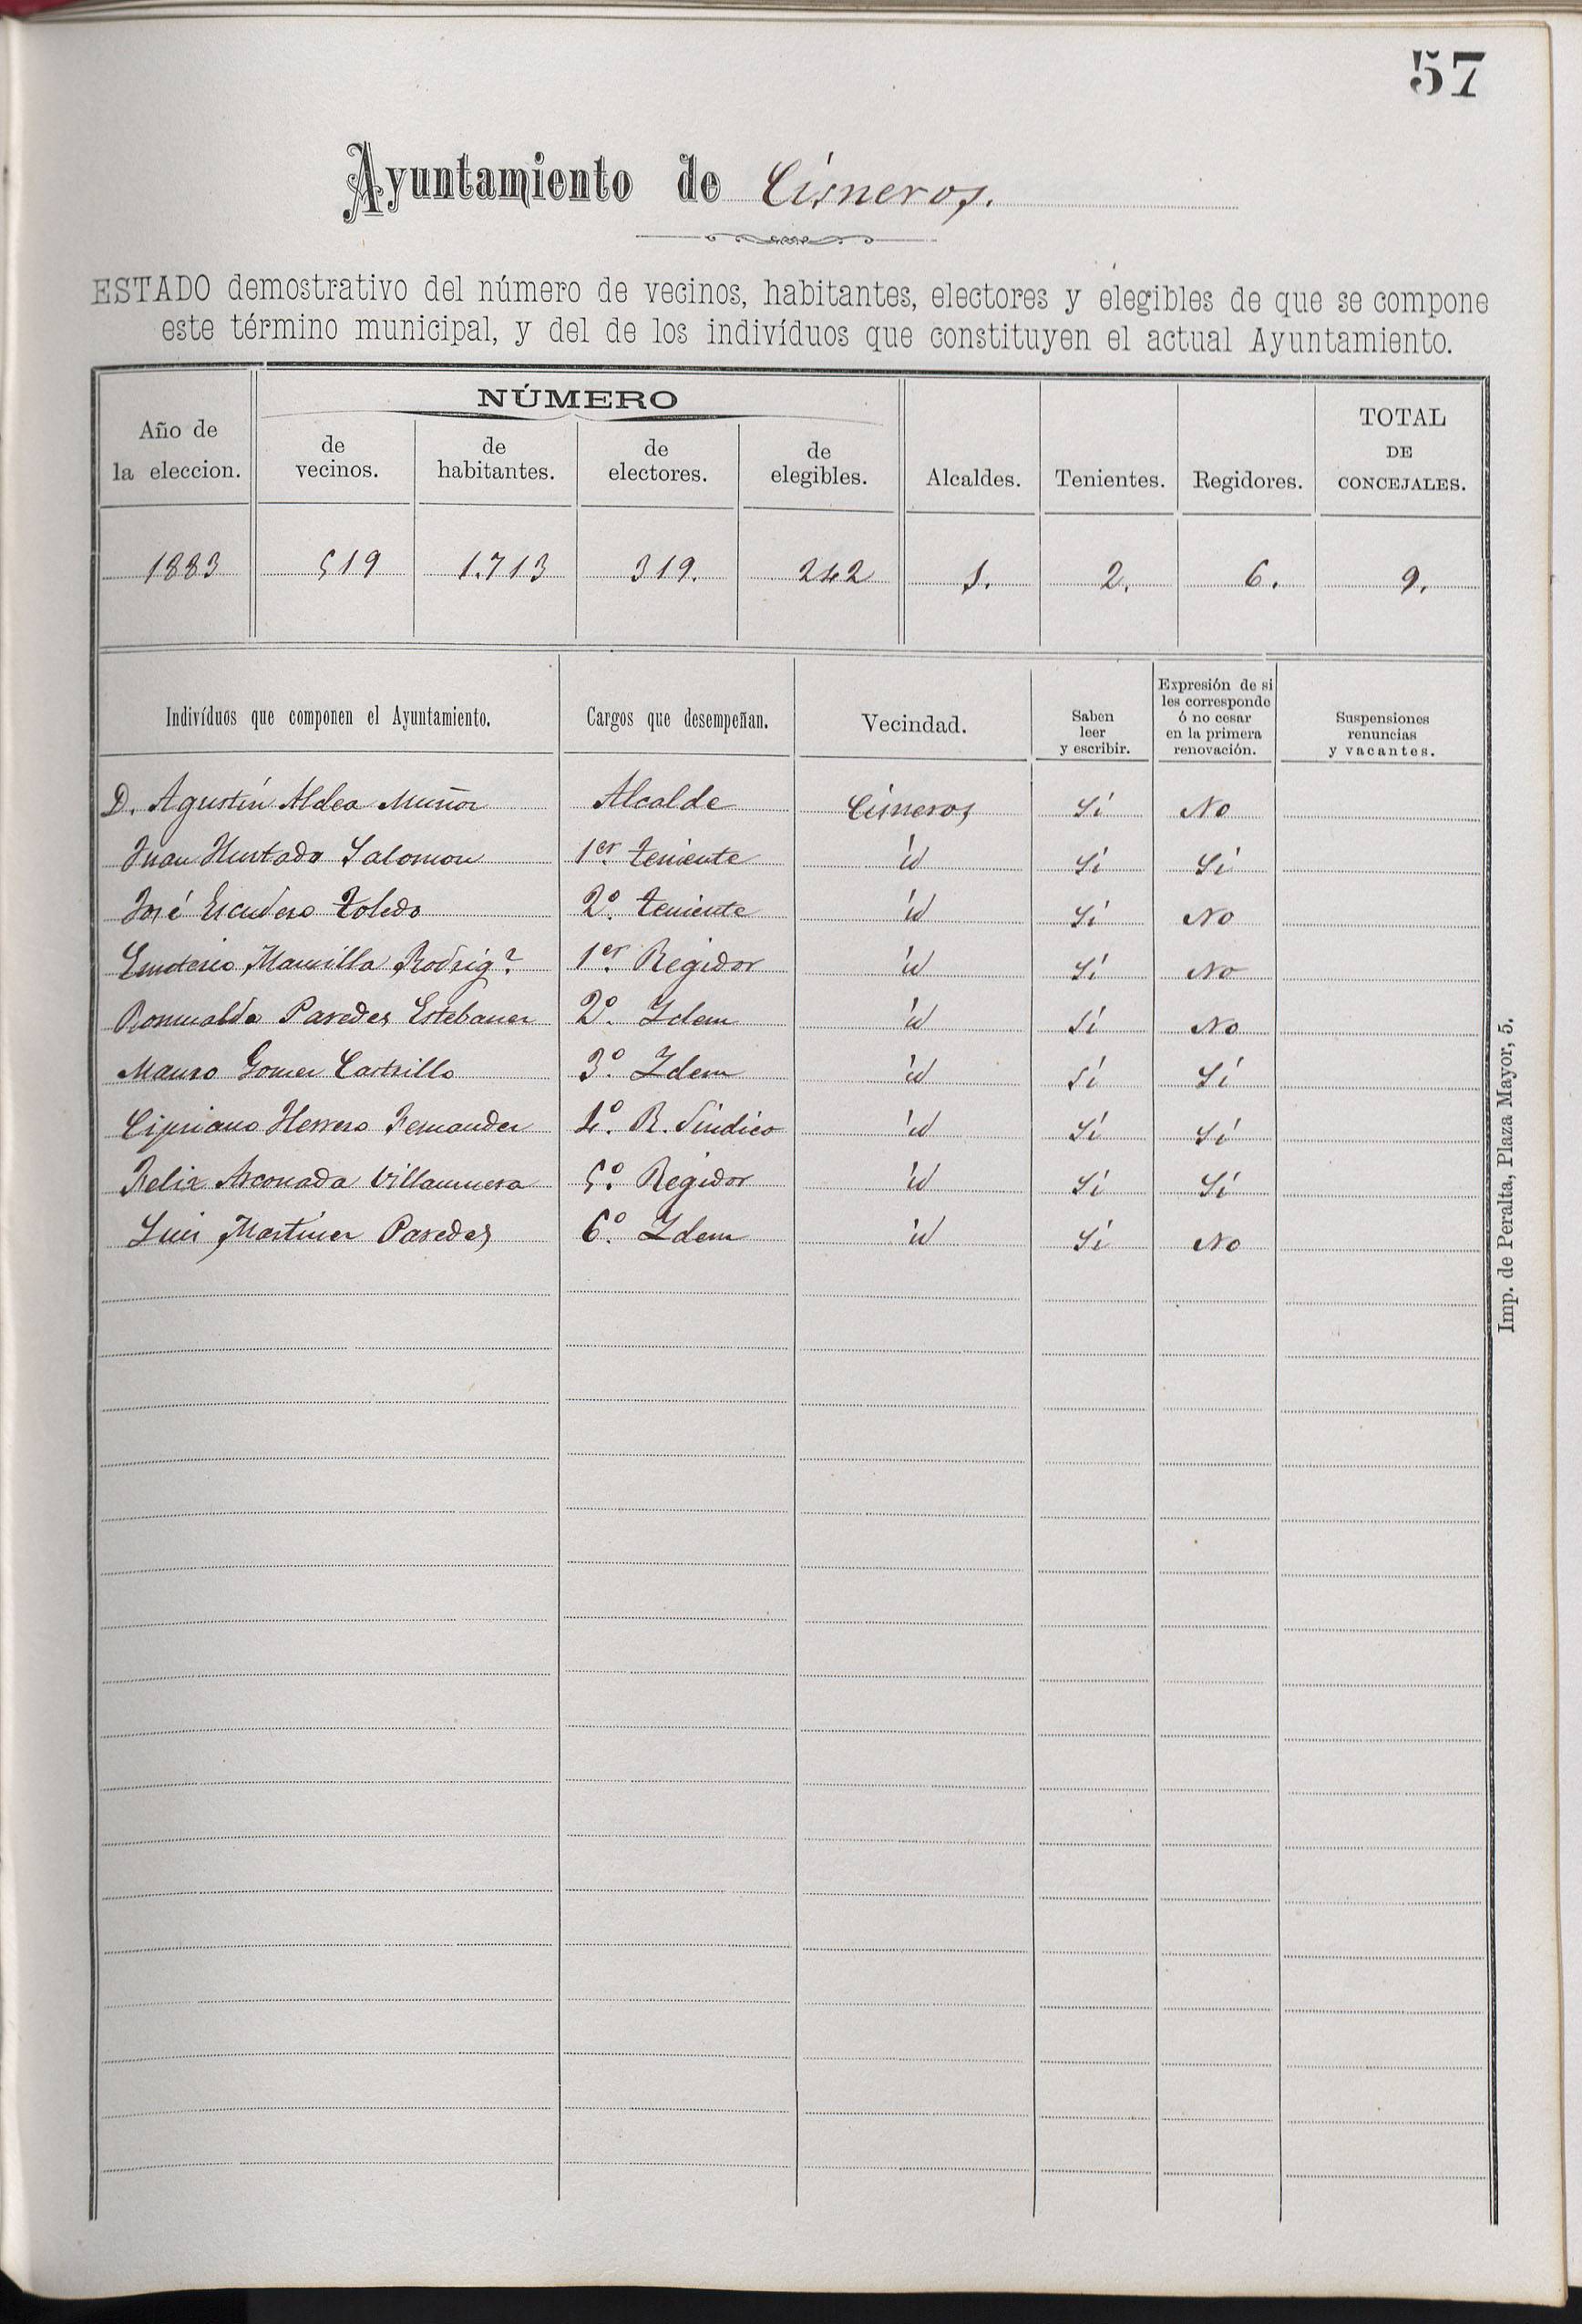 57
Ayuntamiento de Cisneros.
ESTADO demostrativo del número de vecinos, habitantes, electores y elegibles de que se compone
este término municipal, y del de los indivíduos que constituyen el actual Ayuntamiento.
Año de la eleccion. NÚMERO de vecinos. de habitantes. de electores. de elegibles. Alcaldes. Tenientes. Regidores. TOTAL DE CONCEJALES.
1883 519 1.713 319. 242 1. 2. 6. 9.
Indivíduos que componen el Ayuntamiento. Cargos que desempeñan. Vecindad. Saben leer y escribir. Expresión de si les corresponde ó no cesar en la primera renovación. Suspensiones renuncias y vacantes.
D. Agustín Aldea Muñoz Alcalde Cisneros Si No
Juan Hurtado Salomon 1er. teniente id Si Si
José Escudero Toledo 2º. teniente id Si No
Emeterio Mancilla Rodrigz 1er. Regidor id Si No
Romualdo Paredes Estebanez 2º. Idem id Si No
Mauro Gomez Castrillo 3º. Idem id Si Si
Cipriano Herrero Fernandez 4º. R. Síndico id Si Si
Felix Arconada Villamuera 5º. Regidor id Si Si
Luis Martinez Paredes 6º. Idem id Si No
Imp. de Peralta, Plaza Mayor, 5.